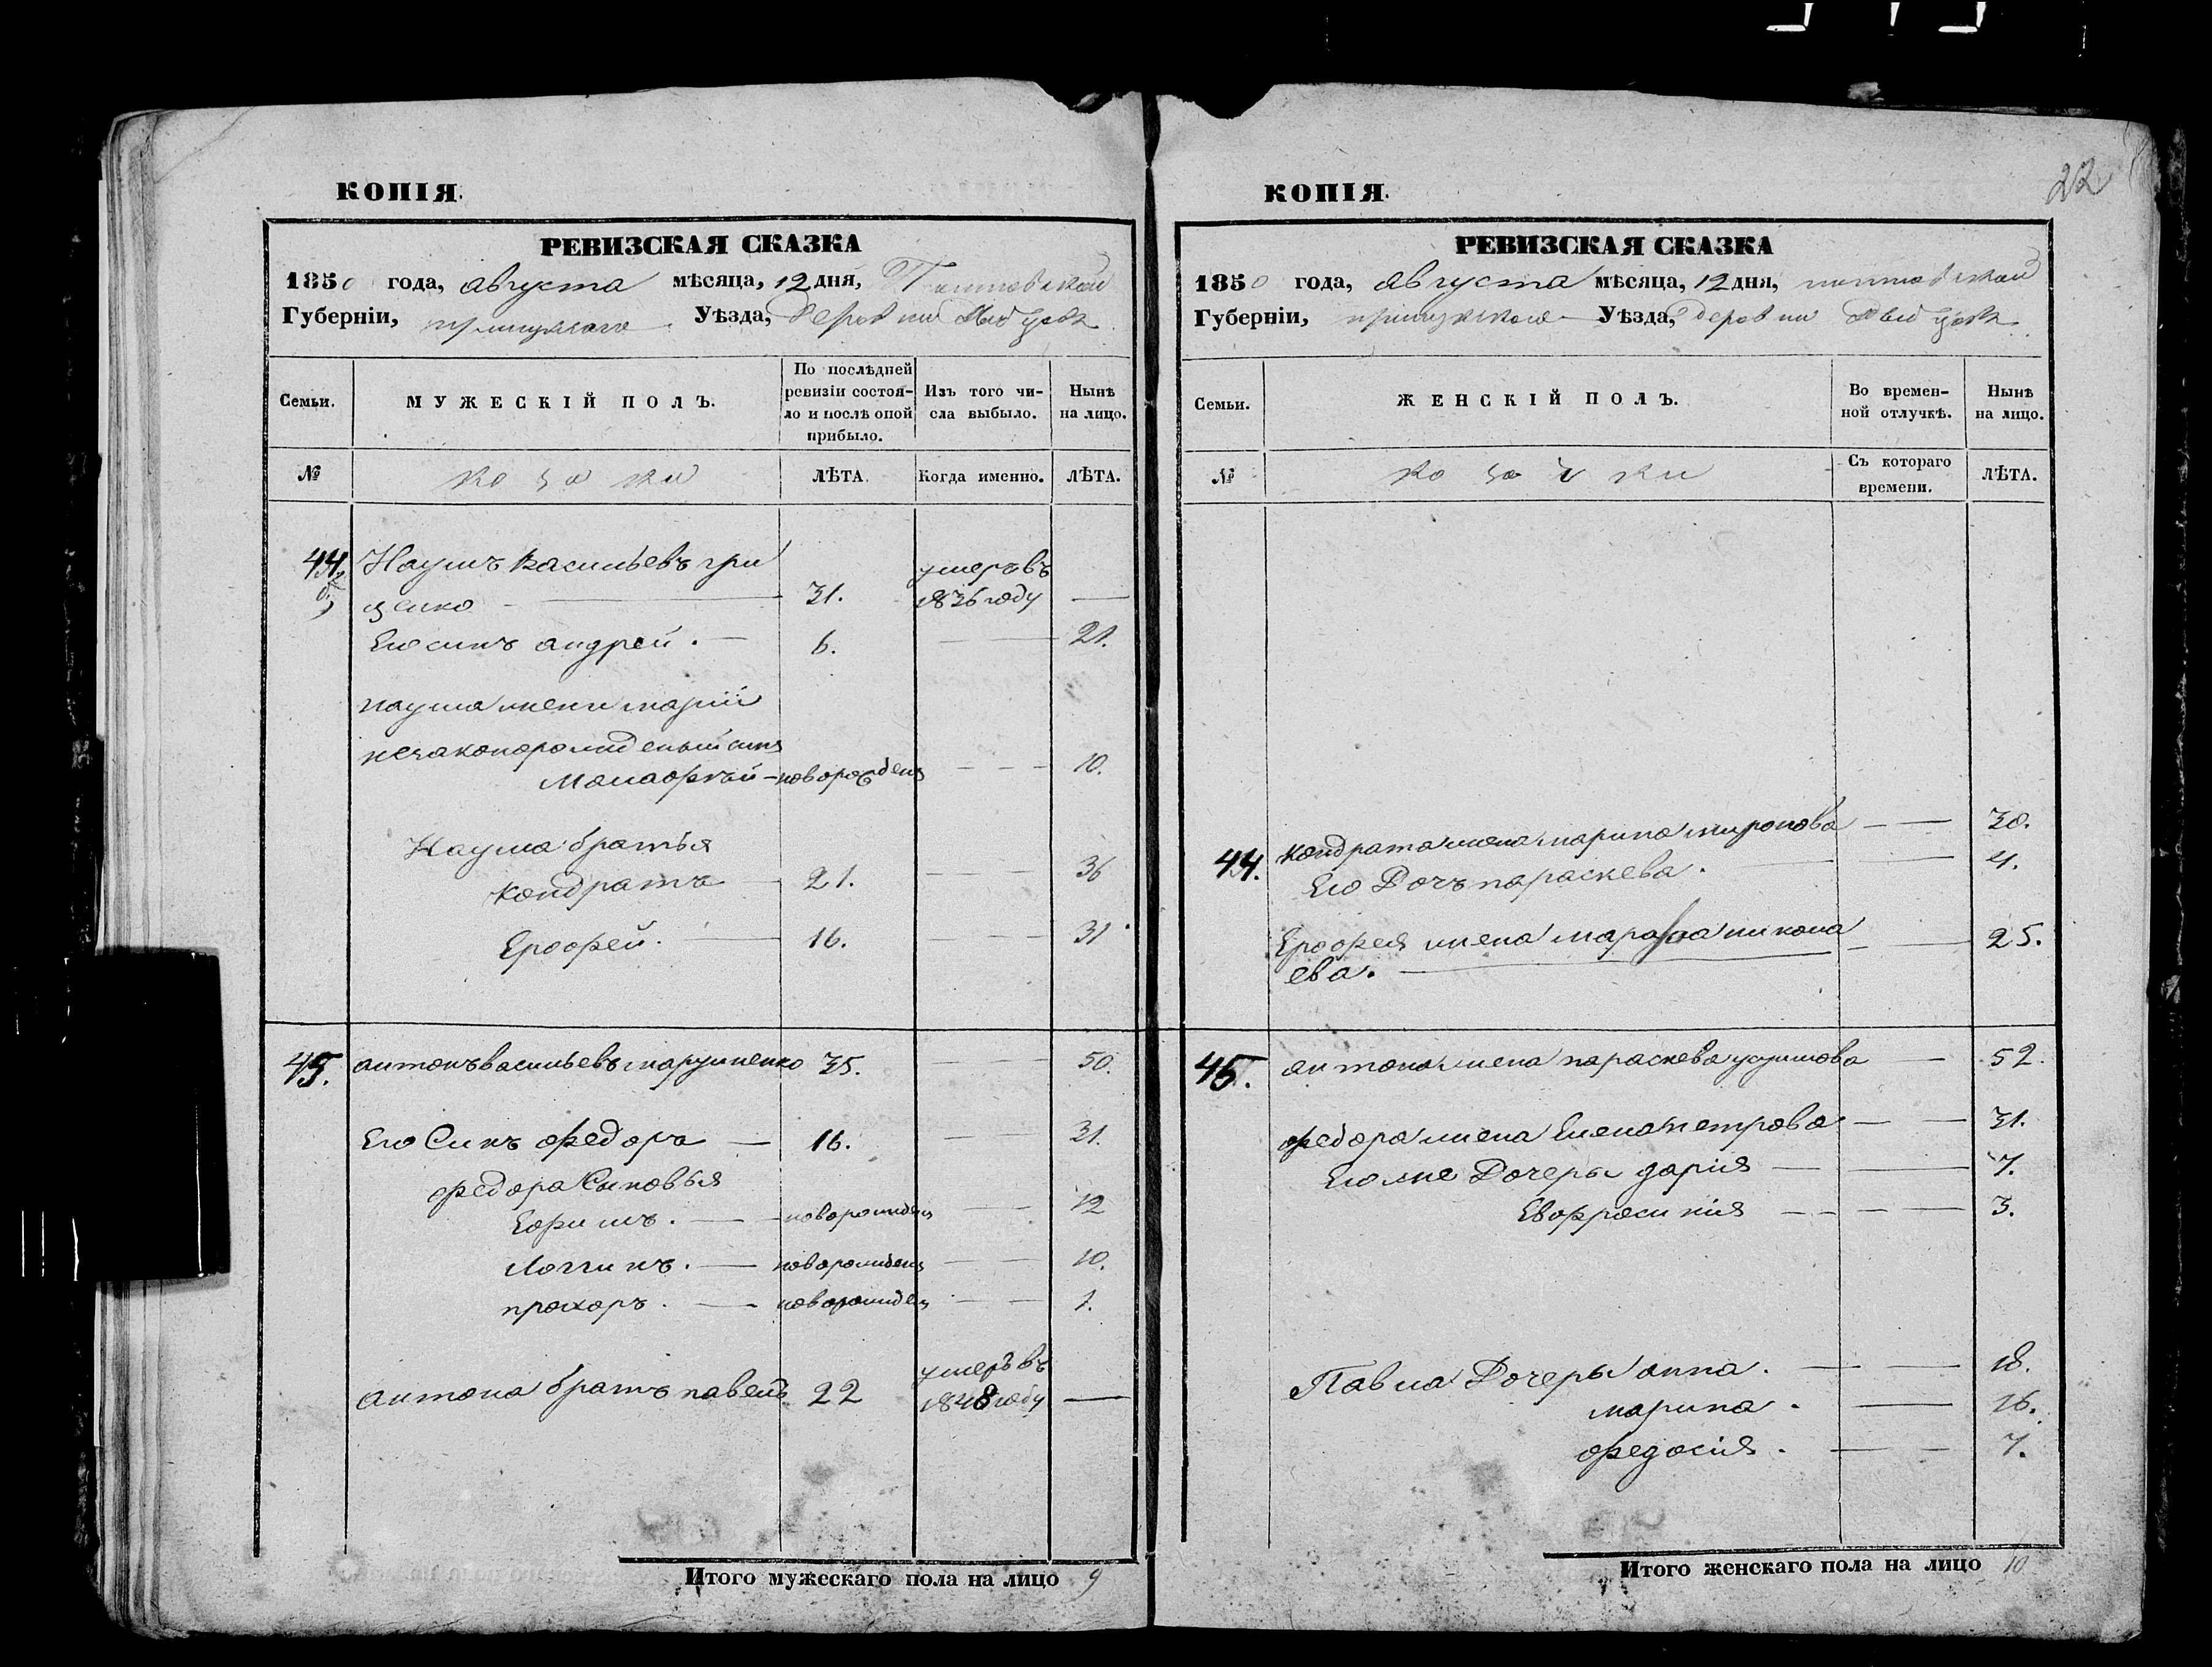 КОПІЯ.
РЕВИЗСКАЯ СКАЗКА
1850 года, августа мѣсяца, 12 дня, Полтавской
Губерніи, прилуцкаго Уѣзда, деревни
Семьи.
МУЖЕСКІЙ ПОЛЪ.
По послѣдней
ревизіи состоя-
ло и послѣ оной
прибыло.
Изъ того чи-
сла выбыло.
Нынѣ
на лицо.
№
козаки
ЛѢТА.
Когда именно.
ЛѢТА.
44 Наумъ васильевъ гри умеръ въ
ценко — 31. 1836 году —
Его синъ андрей. — 6. — 21.
наума жени марии
незаконорожденый синъ
новорожденъ — — 10.
Наума братья
кондратъ — 21. — — — 36
Ерофей. — 16. — — — 31
45. антонъ васильевъ марушенко 35. — — — 50.
Его Синъ федоръ — 16. — — 31.
федора Сыновья
Ефимъ. — новорожденъ — — 12
Логгинъ. — новорожденъ — — 10.
прохоръ. — новорожденъ — — 1.
умеръ въ
антона братъ павелъ 22 1848 году —
Итого мужескаго пола на лицо 9
22
КОПІЯ.
РЕВИЗСКАЯ СКАЗКА
1850 года, августа мѣсяца, 12 дня, полтавской
Губерніи, прилуцкаго Уѣзда, деревни
Семьи.
ЖЕНСКІЙ ПОЛЪ.
Во времен-
ной отлучкѣ.
Нынѣ
на лицо.
№
козачки
Съ котораго
времени.
ЛѢТА.
44. кондрата жена марина миронова — — 30.
Его Дочъ параскева. — 4.
Ерофея жена марфа никола — — 25.
ева. —
45. антона жена параскева устимова — 52.
федора жена Елена петрова — — 31.
Его же Дочеры дарія — — 7.
Евфросинія — — — 3.
Павла Дочеры анна. — — 18.
марина. — 16.
федосія. — — 7.
Итого женскаго пола на лицо 10